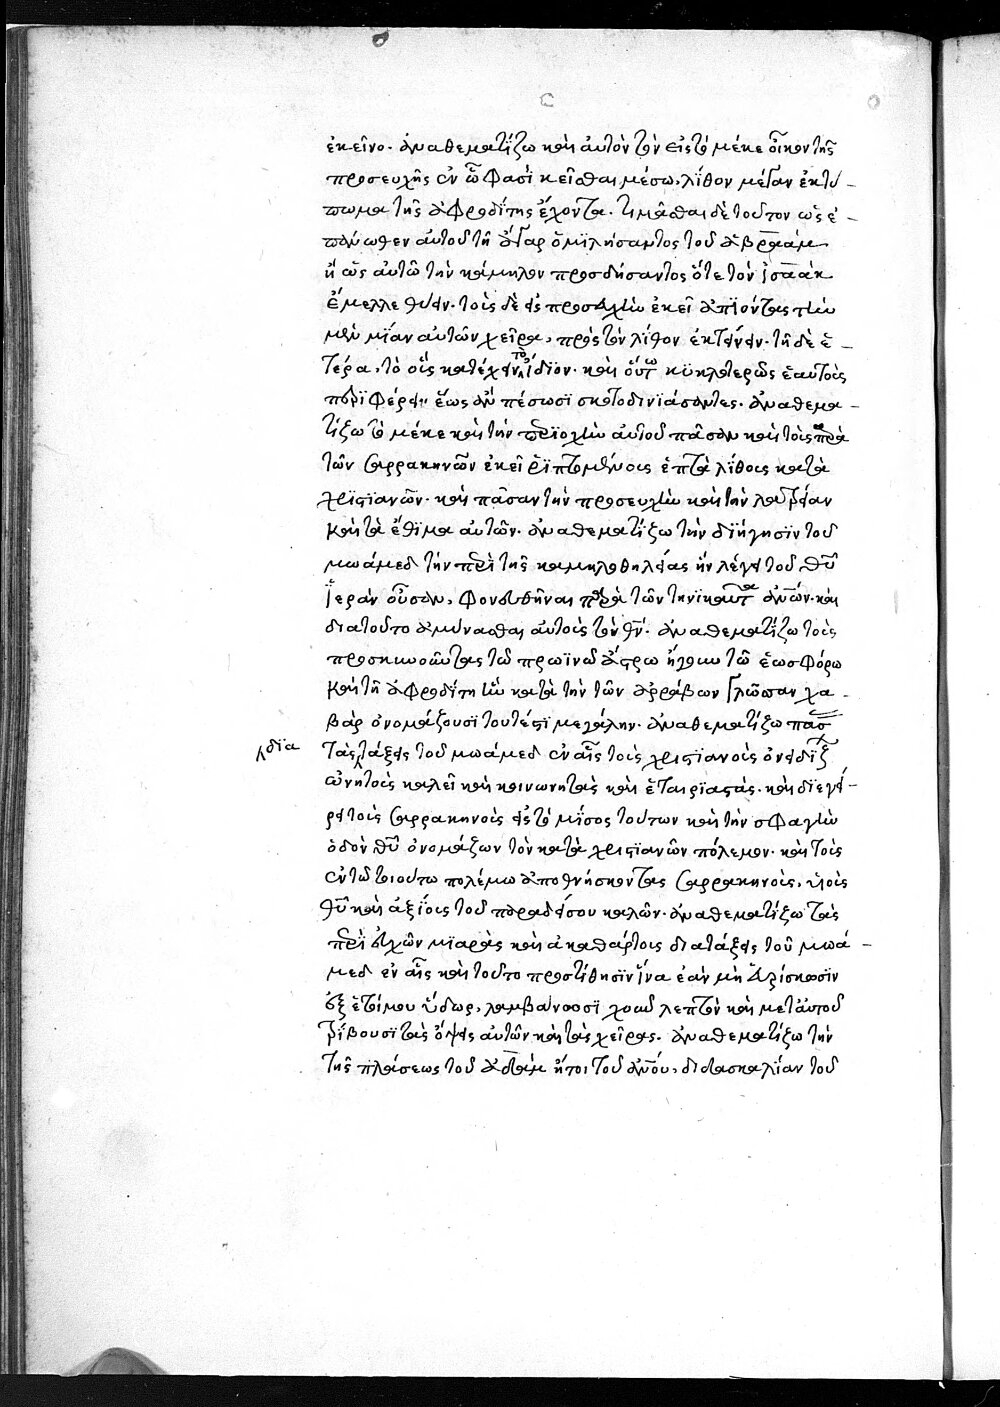 ἐκεῖνο· ἀναθεματίζω καὶ αὐτὸν τὸν εἰς τὸ μέκε οἶκον τῆς
προσευχῆς ἐν ὧ φασὶ κεῖσθαι μέσω, λίθον μέγαν ἐκτύ-
πωμα τῆς ἀφροδίτης ἔχοντα· τιμᾶσθαι δὲ τοῦτον ὡς ἐ-
πάνωθεν αὐτοῦ τῆ ἄγαρ ὁμιλήσαντος τοῦ ἀβραάμ
ἢ ὡς αὐτῶ τὴν κάμηλον προσδήσαντος ὅτε τὸν ἰσαὰκ
ἔμελλε θύειν· τοὺς δὲ εἰς προσευχὴν ἐκεῖ ἀπιόντας τὴν
μὲν μίαν αὐτῶν χεῖρα, πρὸς τὸν λίθον ἐκτείνειν· τῆ δὲ ἑ-
τέρα, τὸ οὖς κατέχειν τὸ ἴδϊον· καὶ οὕτω κϋκλοτερῶς ἑαυτοὺς
περιφέρειν ἕως ἂν πέσωσϊ σκοτοδινϊάσαντες· ἀναθεμα-
τίζω τὸ μέκε καὶ τὴν περϊοχὴν αὐτοῦ πᾶσαν καὶ τοὺς παρὰ
τῶν σαρρακηνῶν ἐκεῖ ῥϊπτομένους ἑπτὰ λίθους κατὰ
χριστϊανῶν· καὶ πᾶσαν τὴν προσευχὴν καὶ τὴν λατρείαν
καὶ τὰ ἔθιμα αὐτῶν· ἀναθεματίζω τὴν διήγησϊν τοῦ
μωάμεδ τὴν περὶ τῆς καμήλου θηλείας ἣν λέγει τοῦ θῦ
ἱερὰν οὖσαν, φονευθῆναι παρὰ τῶν τηνϊκαῦτα ἀνῶν· καὶ
διατοῦτο ἀμύνασθαι αὐτοὺς τὸν θν· ἀναθεματίζω τοὺς
προσκυνοῦντας τῶ πρωϊνῶ ἄστρω ἤγουν τῶ ἑωσφόρω
καὶ τῆ ἀφροδίτη ἣν κατὰ τὴν τῶν ἀράβων γλῶσσαν χα-
βὰρ ὀνομάζουσϊ τουτέστϊ μεγάλην· ἀναθεματίζω πάσ
τὰς διατάξεις τοῦ μωάμεδ ἐν αἷς τοὺς χριστϊανοὺς ὀνειδίζ
ωνητοὺς καλεῖ καὶ κοινωνητὰς καὶ ἑταιρϊαστάς· καὶ δϊεγεί-
ρει τοὺς σαρρακηνοὺς εἰς τὸ μῖσος τούτων καὶ τὴν σφαγὴν
ὁδὸν θῦ ὀνομάζων τὸν κατὰ χριστϊανῶν πόλεμον· καὶ τοὺς
ἐν τῶ τοιούτω πολέμω ἀποθνήσκοντας σαρρακηνοὺς, υἱοὺς
θῦ καὶ ἀξίους τοῦ παραδείσου καλῶν· ἀναθεματίζω τὰς
περὶ εὐχῶν μϊαρὰς καὶ ἀκαθάρτους διατάξεις τοῦ μωά-
μεδ ἐν αἷς καὶ τοῦτο προστίθησϊν ἵνα ἐὰν μὴ εὑρίσκωσϊν
ἐξ ἑτοίμου ὕδωρ, λαμβάνωσϊ χοῦν λεπτὸν καὶ μετ αὐτοῦ
τρίβουσϊ τὰς ὄψεις αὐτῶν καὶ τὰς χεῖρας· ἀναθεματίζω τὴν
τῆς πλάσεως τοῦ ἀδὰμ ἤτοι τοῦ ἀνου, διδασκαλίαν τοῦ